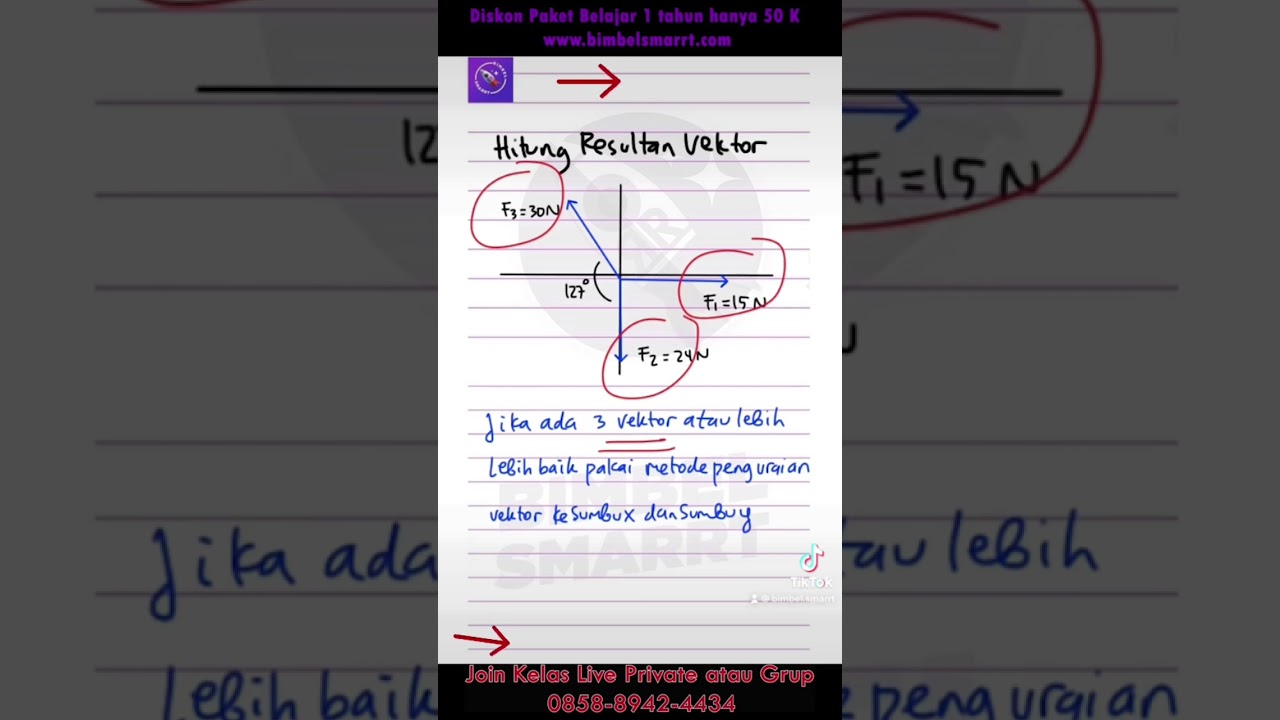 Diskon Paket Belajar 1 tahun hanya 50 K
www.bimbelsmarrt.com
Hitung Resultan Vektor
F3=30N
127°
F1=15N
F2=24N
Jika ada 3 vektor atau lebih
lebih baik pakai metode penguraian
vektor ke sumbu x dan sumbu y
BIMBEL
SMARRT
TikTok
@bimbelsmarrt
Join Kelas Live Private atau Grup
0858-8942-4434
12
F1=15N
Jika ada
tau lebih
lebih baik
penguraian